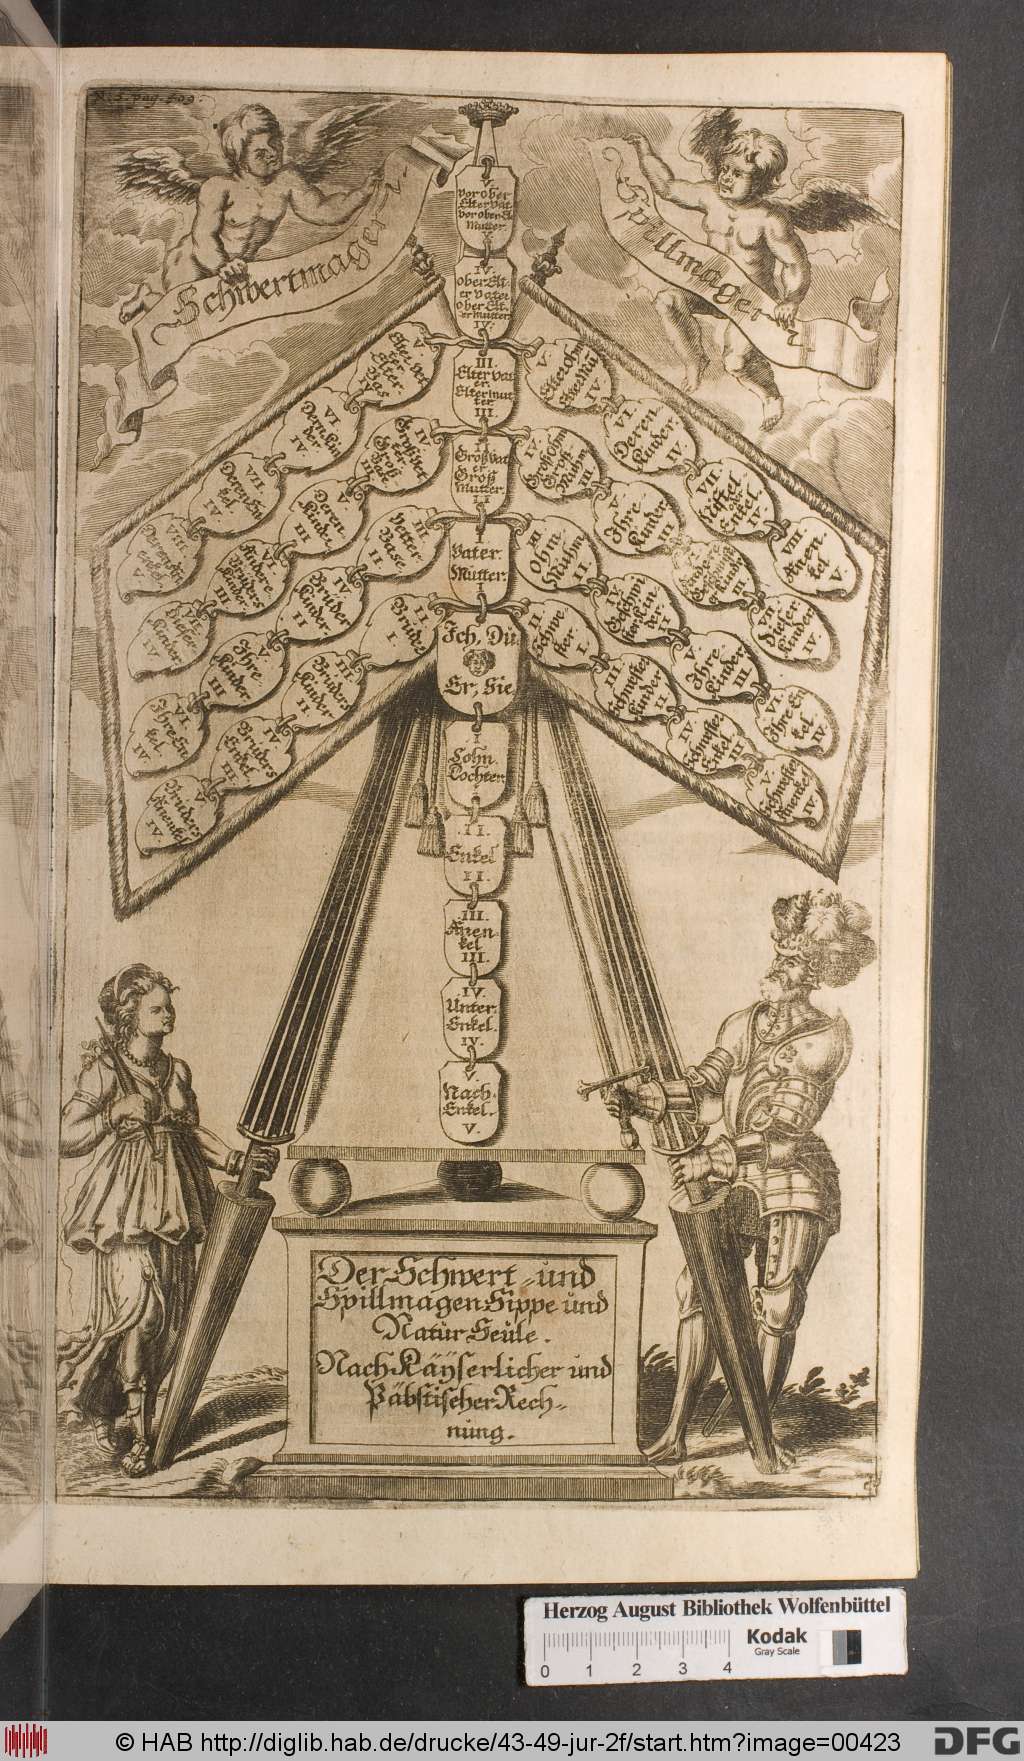 N. 5. pag. 503.
Schwertmagen
Spillmagen
V.
vor ober
Elter vat.
vor ober El.
Mutter.
V.
IV.
ober Elt-
er vater
ober Elt-
er mutter
IV.
III.
Elter vat-
er.
Elter mut-
ter.
III.
II
Großvat-
er
Groß
Mutter.
II
I
Vater.
Mutter.
I
Ich, Du.
Er, Sie
I
Sohn.
Tochter.
I
II.
Enkel
II.
III.
Änen-
kel
III.
IV.
Unter-
Enkel.
IV.
V.
Nach-
Enkel.
V.
V.
Elter vat-
ter.
Elter
Bas
IV
VI.
Dern Kin-
der.
IV.
VII
Deren En-
kel
IV
VIII.
Deren Än-
enkel
V.
IV
Groß vet-
ter
Groß
Base
III
V
Deren
Kinder.
III
VI.
Kindere
Bruders
Kinder.
III
VII.
Dieser
Kinder.
IV.
III
Vetter
Base.
II
IV.
Bruder
Kinder
II
V
Ihre
Kinder
III
VI
Ihre En-
kel.
IV.
II
Brud.
I.
III
Bruders
Kinder
II
IV.
Bruders
Enckel
III
V
Bruders
Änenkel
IV.
V.
Elter ohm
Elter Mü
IV
VI.
Deren
Kinder.
IV
VII
Niftel
oder
Enkel.
IV
VIII.
Änen-
kel
V.
IV.
Groß Ohm
Groß
Muhm
III
V
Ihre
Kinder
III
III
VII
Dieser
Kinder
IV.
III
Ohm.
Muhm
II
IV
Geschwi
sterkin-
der.
II
V
Ihre
Kinder
III
VI
Ihre En
kel.
IV.
II
Schwe-
ster
I.
III
Schwester
Kinder
II
IV
Schwester
Enkel.
III
V
Schwester
Änenkel
IV.
Der Schwert- und
Spillmagen Sippe und
Natur Seule.
Nach Käyserlicher und
Päbstischer Rech-
nung.
Herzog August Bibliothek Wolfenbüttel
Kodak
Gray Scale
0 1 2 3 4
© HAB http://diglib.hab.de/drucke/43-49-jur-2f/start.htm?image=00423
DFG